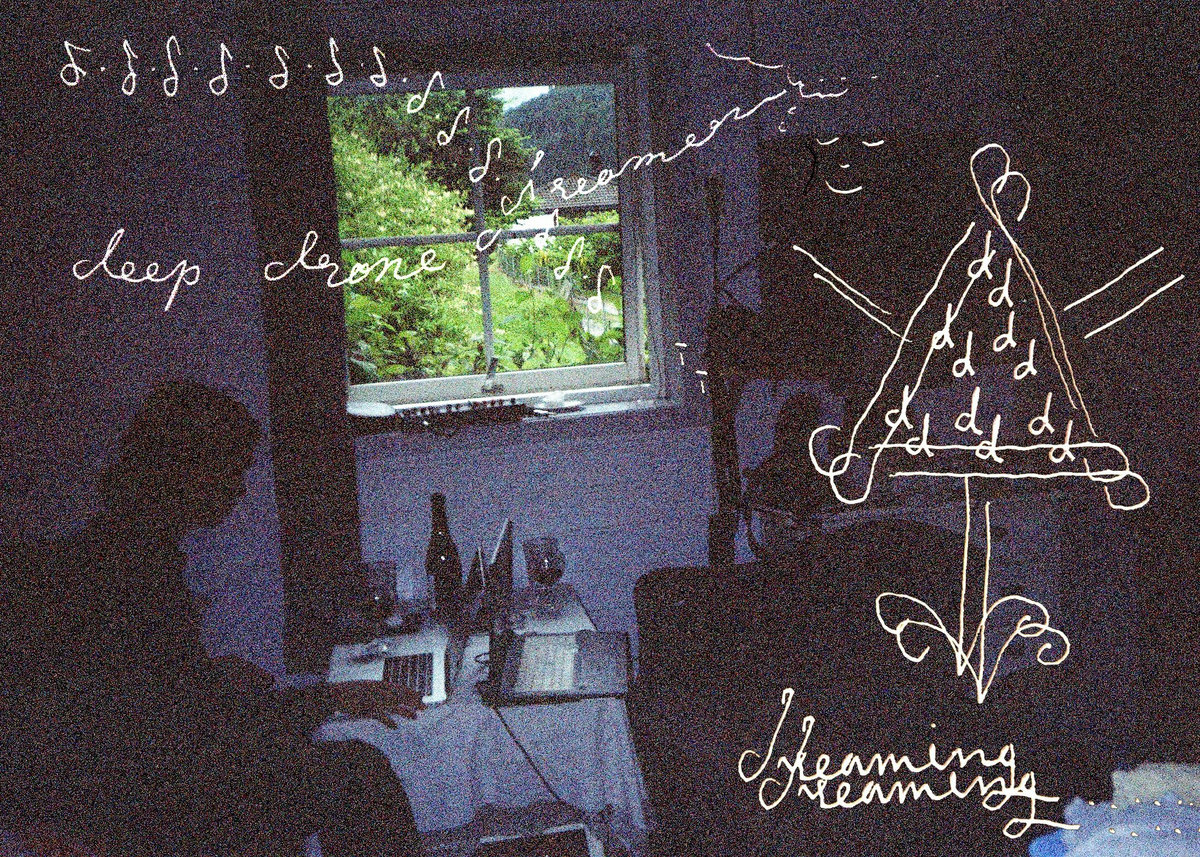 d . d . d . d . d . d . d . d . d . d . d . d . d
deep drone
d
d
d d
d d
d d d
d d d
dreaming
dreaming